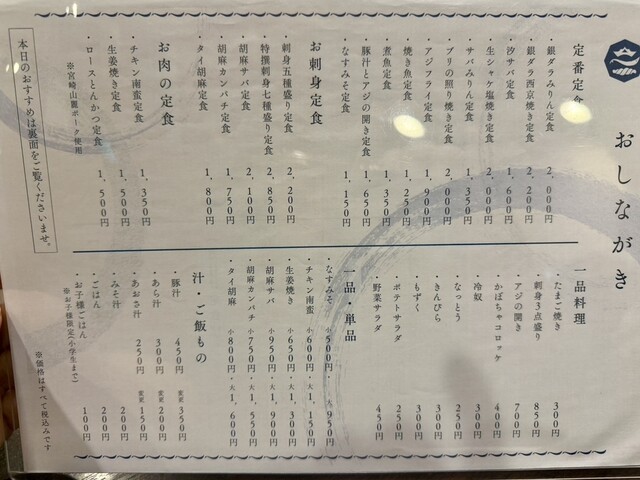 おしながき
定番定食
・銀ダラみりん定食 2,000円
・銀ダラ西京焼き定食 2,200円
・汐サバ定食 1,600円
・生シャケ塩焼き定食 2,000円
・サバみりん定食 1,350円
・ブリの照り焼き定食 2,000円
・アジフライ定食 1,900円
・焼き魚定食 1,250円
・煮魚定食 1,350円
・豚汁とアジの開き定食 1,650円
・なすみそ定食 1,150円
お刺身定食
・刺身五種盛り定食 2,200円
・特撰刺身七種盛り定食 2,850円
・胡麻サバ定食 2,100円
・胡麻カンパチ定食 1,750円
・タイ胡麻定食 1,800円
お肉の定食
・チキン南蛮定食 1,350円
・生姜焼き定食 1,500円
・ロースとんかつ定食 1,500円
※宮崎山麗ポーク使用
本日のおすすめは裏面をご覧くださいませ。
一品料理
・たまご焼き 300円
・刺身3点盛り 850円
・アジの開き 700円
・かぼちゃコロッケ 400円
・冷奴 300円
・なっとう 250円
・きんぴら 300円
・もずく 300円
・ポテトサラダ 250円
・野菜サラダ 450円
一品・単品
・なすみそ 小500円・大950円
・チキン南蛮 小600円・大1,150円
・生姜焼き 小650円・大1,300円
・胡麻サバ 小950円・大1,900円
・胡麻カンパチ 小800円・大1,550円
・タイ胡麻 小800円・大1,600円
汁・ご飯もの
・豚汁 450円 変更350円
・あら汁 300円 変更200円
・あおさ汁 250円 変更150円
・みそ汁 200円
・ごはん 200円
・お子様ごはん 100円
※お子様限定(小学生まで)
※価格はすべて税込みです